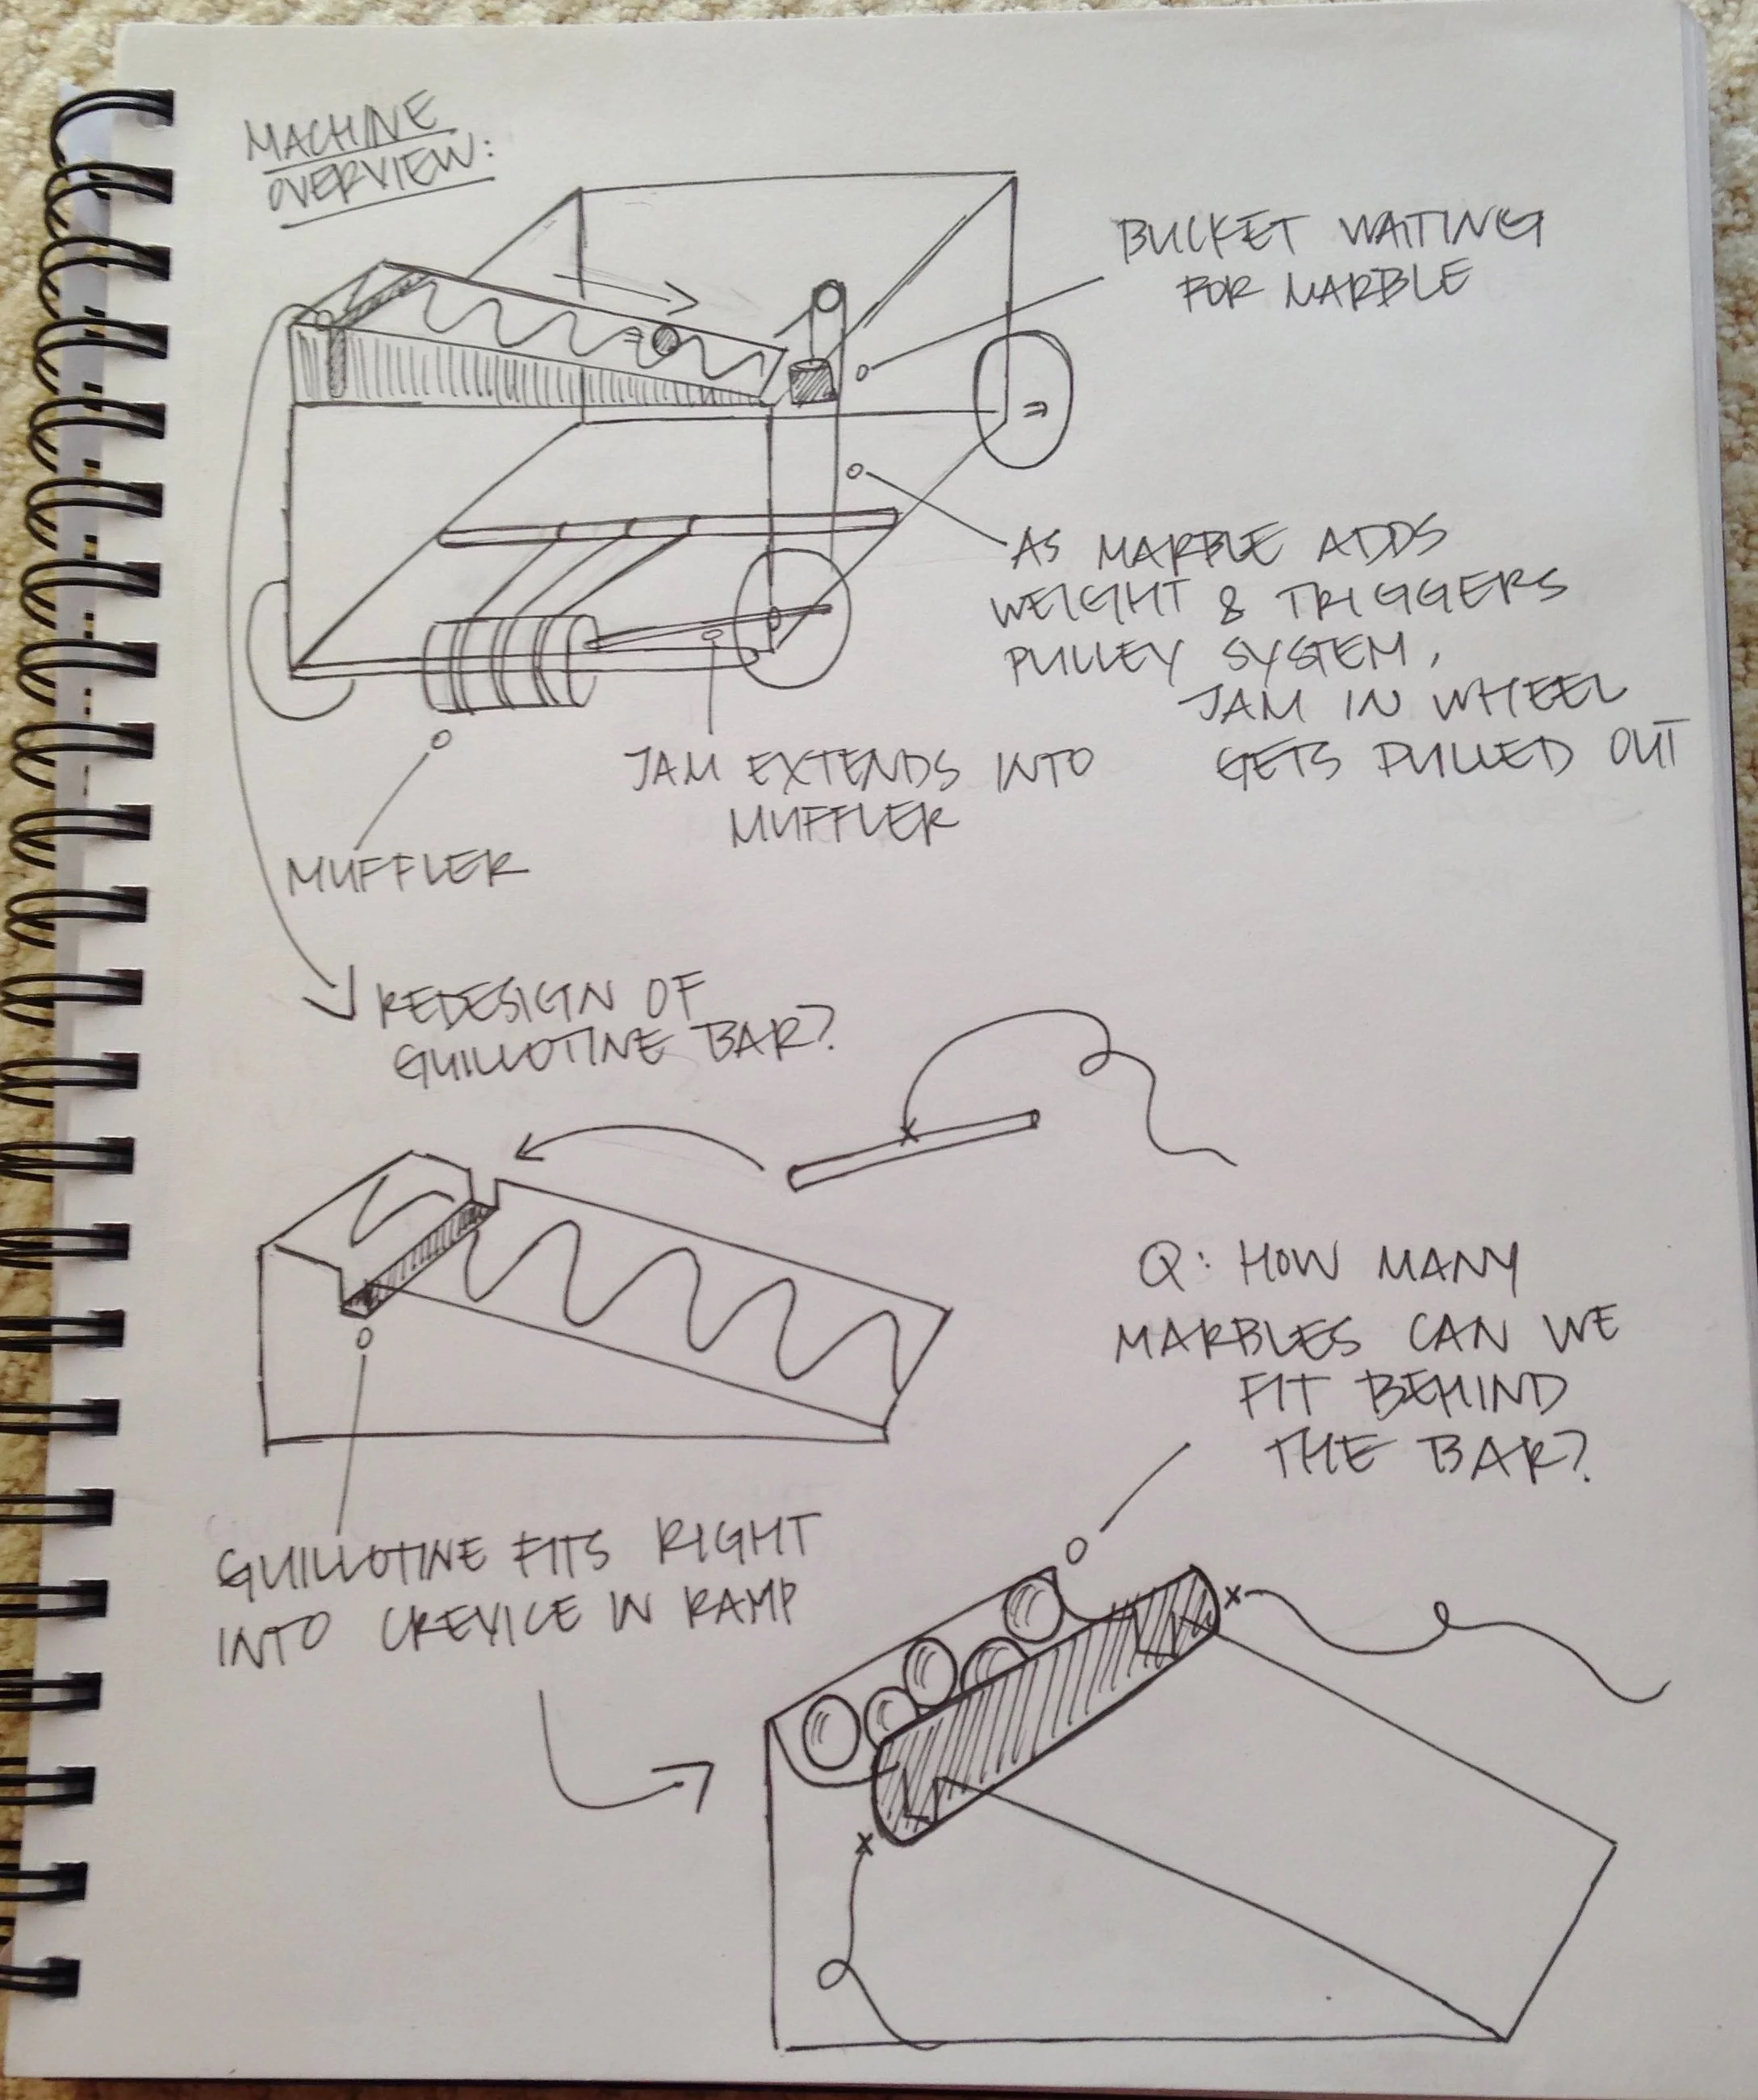 MACHINE
OVERVIEW:
BUCKET WAITING
FOR MARBLE
AS MARBLE ADDS
WEIGHT & TRIGGERS
PULLEY SYSTEM,
JAM IN WHEEL
GETS PULLED OUT
JAM EXTENDS INTO
MUFFLER
MUFFLER
REDESIGN OF
GUILLOTINE BAR?
Q: HOW MANY
MARBLES CAN WE
FIT BEHIND
THE BAR?
GUILLOTINE FITS RIGHT
INTO CREVICE IN RAMP